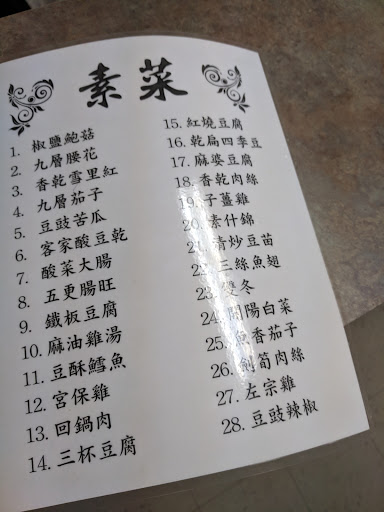 素菜
1. 椒鹽鮑菇
2. 九層腰花
3. 香乾雪里紅
4. 九層茄子
5. 豆豉苦瓜
6. 客家酸豆乾
7. 酸菜大腸
8. 五更腸旺
9. 鐵板豆腐
10. 麻油雞湯
11. 豆酥鱈魚
12. 宮保雞
13. 回鍋肉
14. 三杯豆腐
15. 紅燒豆腐
16. 乾扁四季豆
17. 麻婆豆腐
18. 香乾肉絲
19. 子薑雞
20. 素什錦
21. 清炒豆苗
22. 三絲魚翅
23. 雙冬
24. 開陽白菜
25. 魚香茄子
26. 劍筍肉絲
27. 左宗雞
28. 豆豉辣椒